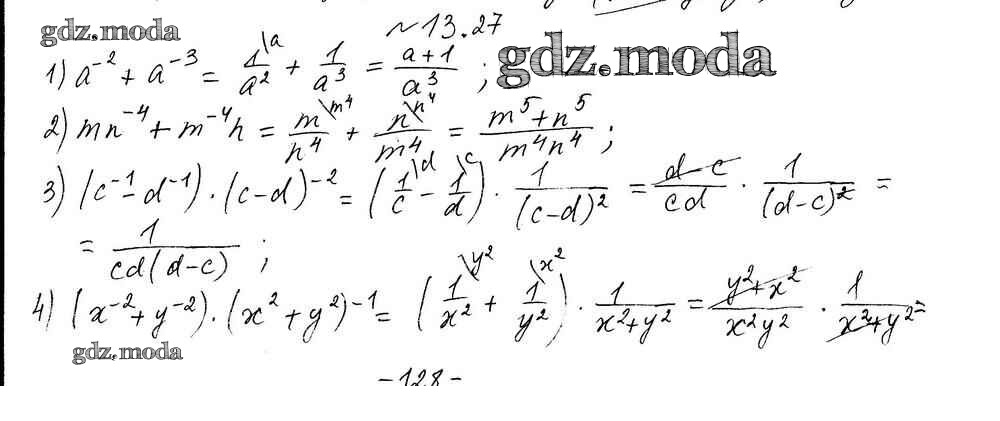 gdz.moda
№13.27
gdz.moda
1) a⁻² + a⁻³ = 1\a/a² + 1/a³ = (a+1)/a³ ;
2) mn⁻⁴ + m⁻⁴n = m\m⁴/n⁴ + n\n⁴/m⁴ = (m⁵+n⁵)/(m⁴n⁴) ;
3) (c⁻¹ - d⁻¹) · (c-d)⁻² = (1\d/c - 1\c/d) · 1/(c-d)² = (d-c)/(cd) · 1/(d-c)² =
= 1/(cd(d-c)) ;
4) (x⁻² + y⁻²) · (x² + y²)⁻¹ = (1\y²/x² + 1\x²/y²) · 1/(x²+y²) = (y²+x²)/(x²y²) · 1/(x²+y²) =
gdz.moda
-128-